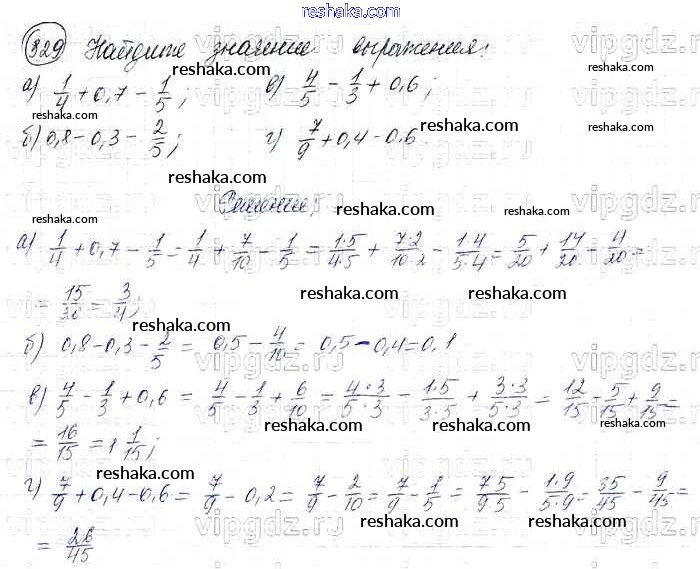 329 Найдите значение выражения:
а) 1/4 + 0,7 - 1/5; в) 4/5 - 1/3 + 0,6;
б) 0,8 - 0,3 - 2/5; г) 7/9 + 0,4 - 0,6
Решение:
а) 1/4 + 0,7 - 1/5 = 1/4 + 7/10 - 1/5 = 1·5/4·5 + 7·2/10·2 - 1·4/5·4 = 5/20 + 14/20 - 4/20 =
= 15/20 = 3/4;
б) 0,8 - 0,3 - 2/5 = 0,5 - 4/10 = 0,5 - 0,4 = 0,1
в) 4/5 - 1/3 + 0,6 = 4/5 - 1/3 + 6/10 = 4·3/5·3 - 1·5/3·5 + 3·3/5·3 = 12/15 - 5/15 + 9/15 =
= 16/15 = 1 1/15;
г) 7/9 + 0,4 - 0,6 = 7/9 - 0,2 = 7/9 - 2/10 = 7/9 - 1/5 = 7·5/9·5 - 1·9/5·9 = 35/45 - 9/45 =
= 26/45
reshaka.com
vipgdz.ru